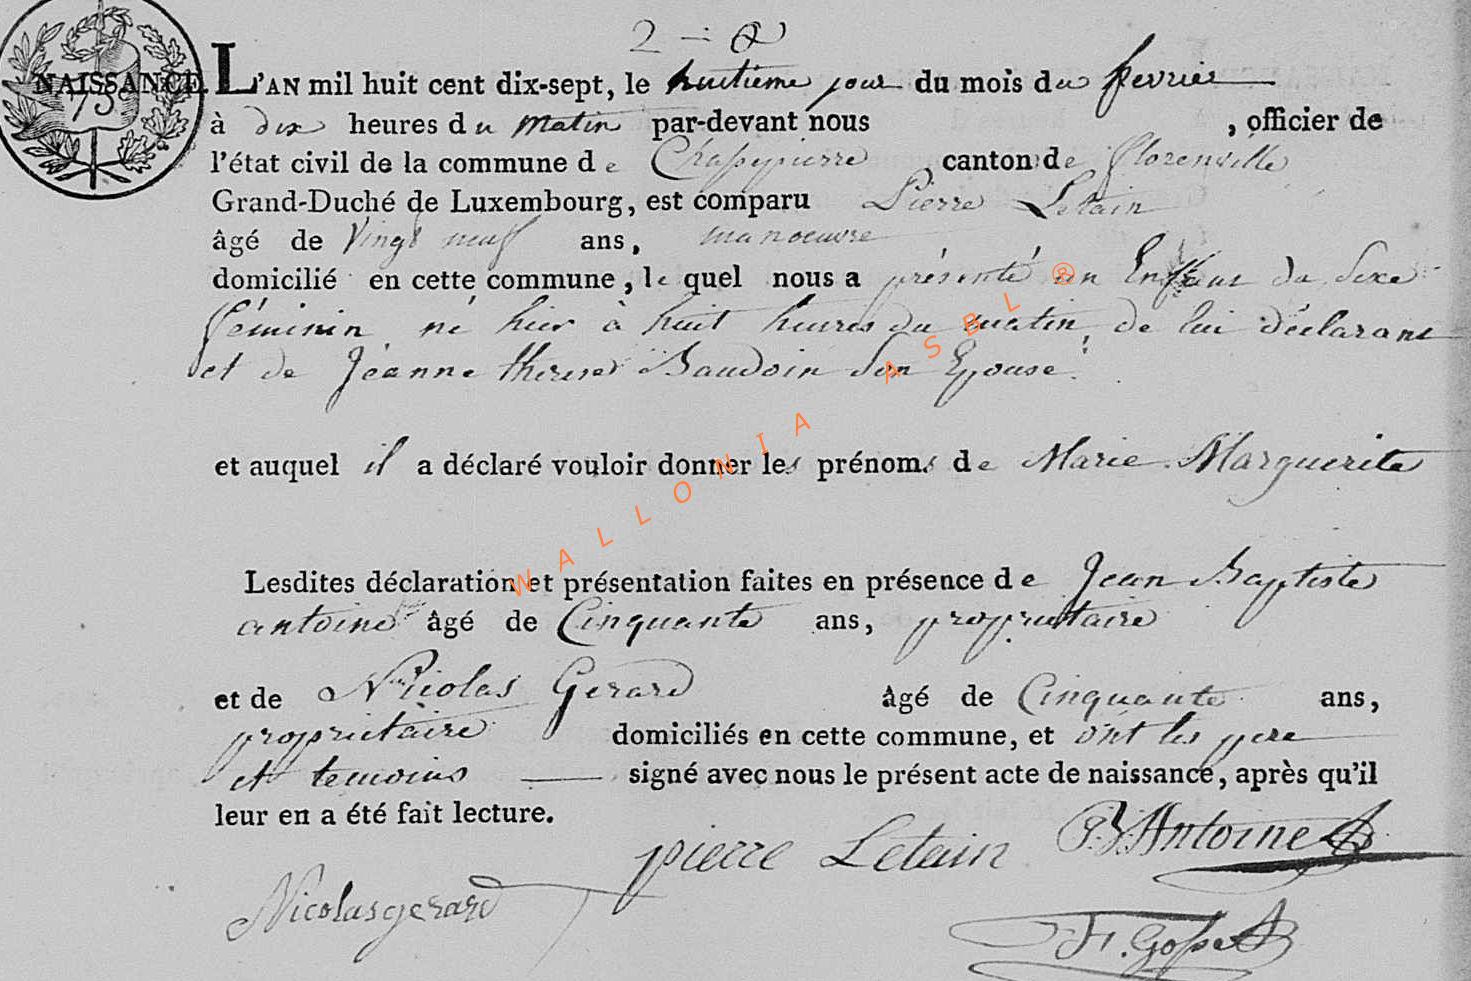 2 - 8
NAISSANCE. L'AN mil huit cent dix-sept, le huitième jour du mois du fevrier
75
à dix heures du matin par-devant nous , officier de
l'état civil de la commune de Chassepierre canton de florenville
Grand-Duché de Luxembourg, est comparu Pierre Letain
âgé de Vingt neuf ans, manoeuvre
domicilié en cette commune, le quel nous a présenté un Enfant du Sexe
féminin né hier à huit heures du matin de lui déclarant
et de Jeanne therese Baudoin Son Epouse
et auquel il a déclaré vouloir donner les prénoms de Marie Marguerite
Lesdites déclaration et présentation faites en présence de Jean Baptiste
antoine âgé de Cinquante ans, propriétaire
et de Nicolas Gerard âgé de Cinquante ans,
propriétaire domiciliés en cette commune, et ont les pere
et temoins signé avec nous le présent acte de naissance, après qu'il
leur en a été fait lecture.
pierre Letain Antoine
Nicolas gerard
Gosset
WALLONIA ASBL ®